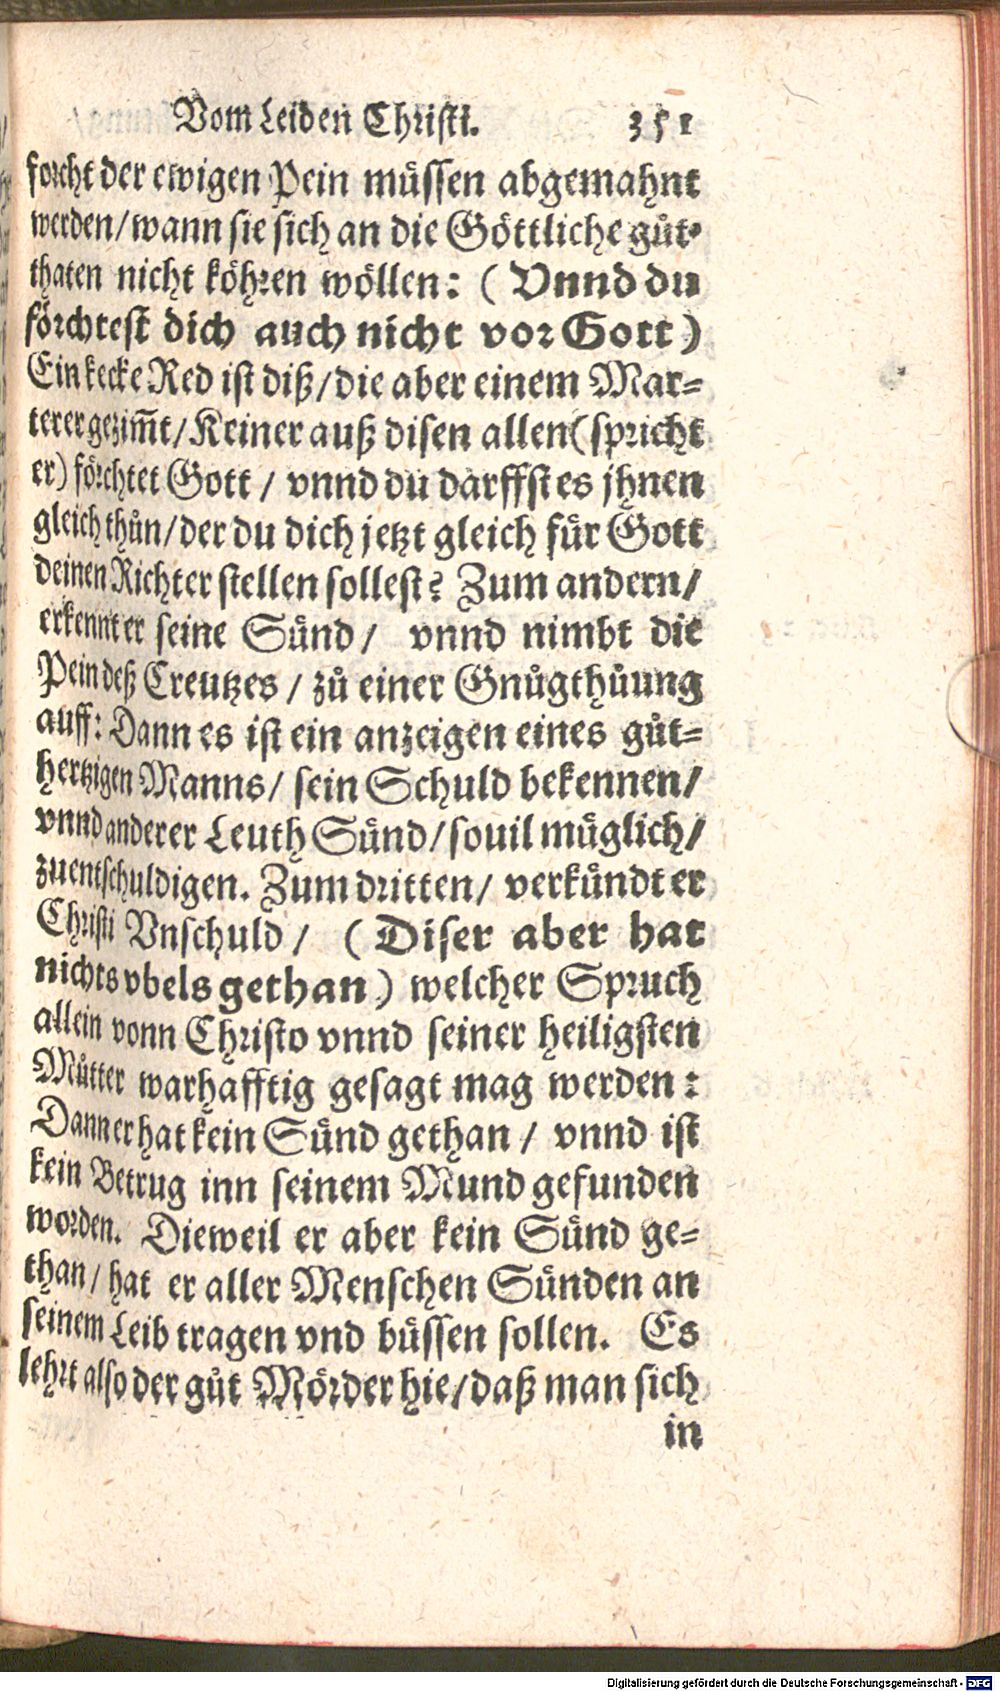 Vom Leiden Christi. 351
forcht der ewigen Pein müssen abgemahnt
werden/ wann sie sich an die Göttliche gůt-
thaten nicht köhren wöllen: ( Vnnd du
förchtest dich auch nicht vor Gott)
Ein kecke Red ist diß/ die aber einem Mar-
terer gezim̃t/ Keiner auß disen allen (spricht
er) förchtet Gott / vnnd du darffst es jhnen
gleich thůn/ der du dich jetzt gleich für Gott
deinen Richter stellen sollest? Zum andern/
erkennt er seine Sünd/ vnnd nimbt die
Pein deß Creutzes / zů einer Gnůgthůung
auff: Dann es ist ein anzeigen eines gůt-
hertzigen Manns/ sein Schuld bekennen/
vnnd anderer Leuth Sünd/ souil müglich/
zuentschuldigen. Zum dritten/ verkündt er
Christi Vnschuld / (Diser aber hat
nichts vbels gethan) welcher Spruch
allein vonn Christo vnnd seiner heiligsten
Můtter warhafftig gesagt mag werden:
Dann er hat kein Sünd gethan / vnnd ist
kein Betrug inn seinem Mund gefunden
worden. Dieweil er aber kein Sünd ge-
than/ hat er aller Menschen Sünden an
seinem Leib tragen vnd büssen sollen. Es
lehrt also der gůt Mörder hie/ daß man sich
in
Digitalisierung gefördert durch die Deutsche Forschungsgemeinschaft - DFG